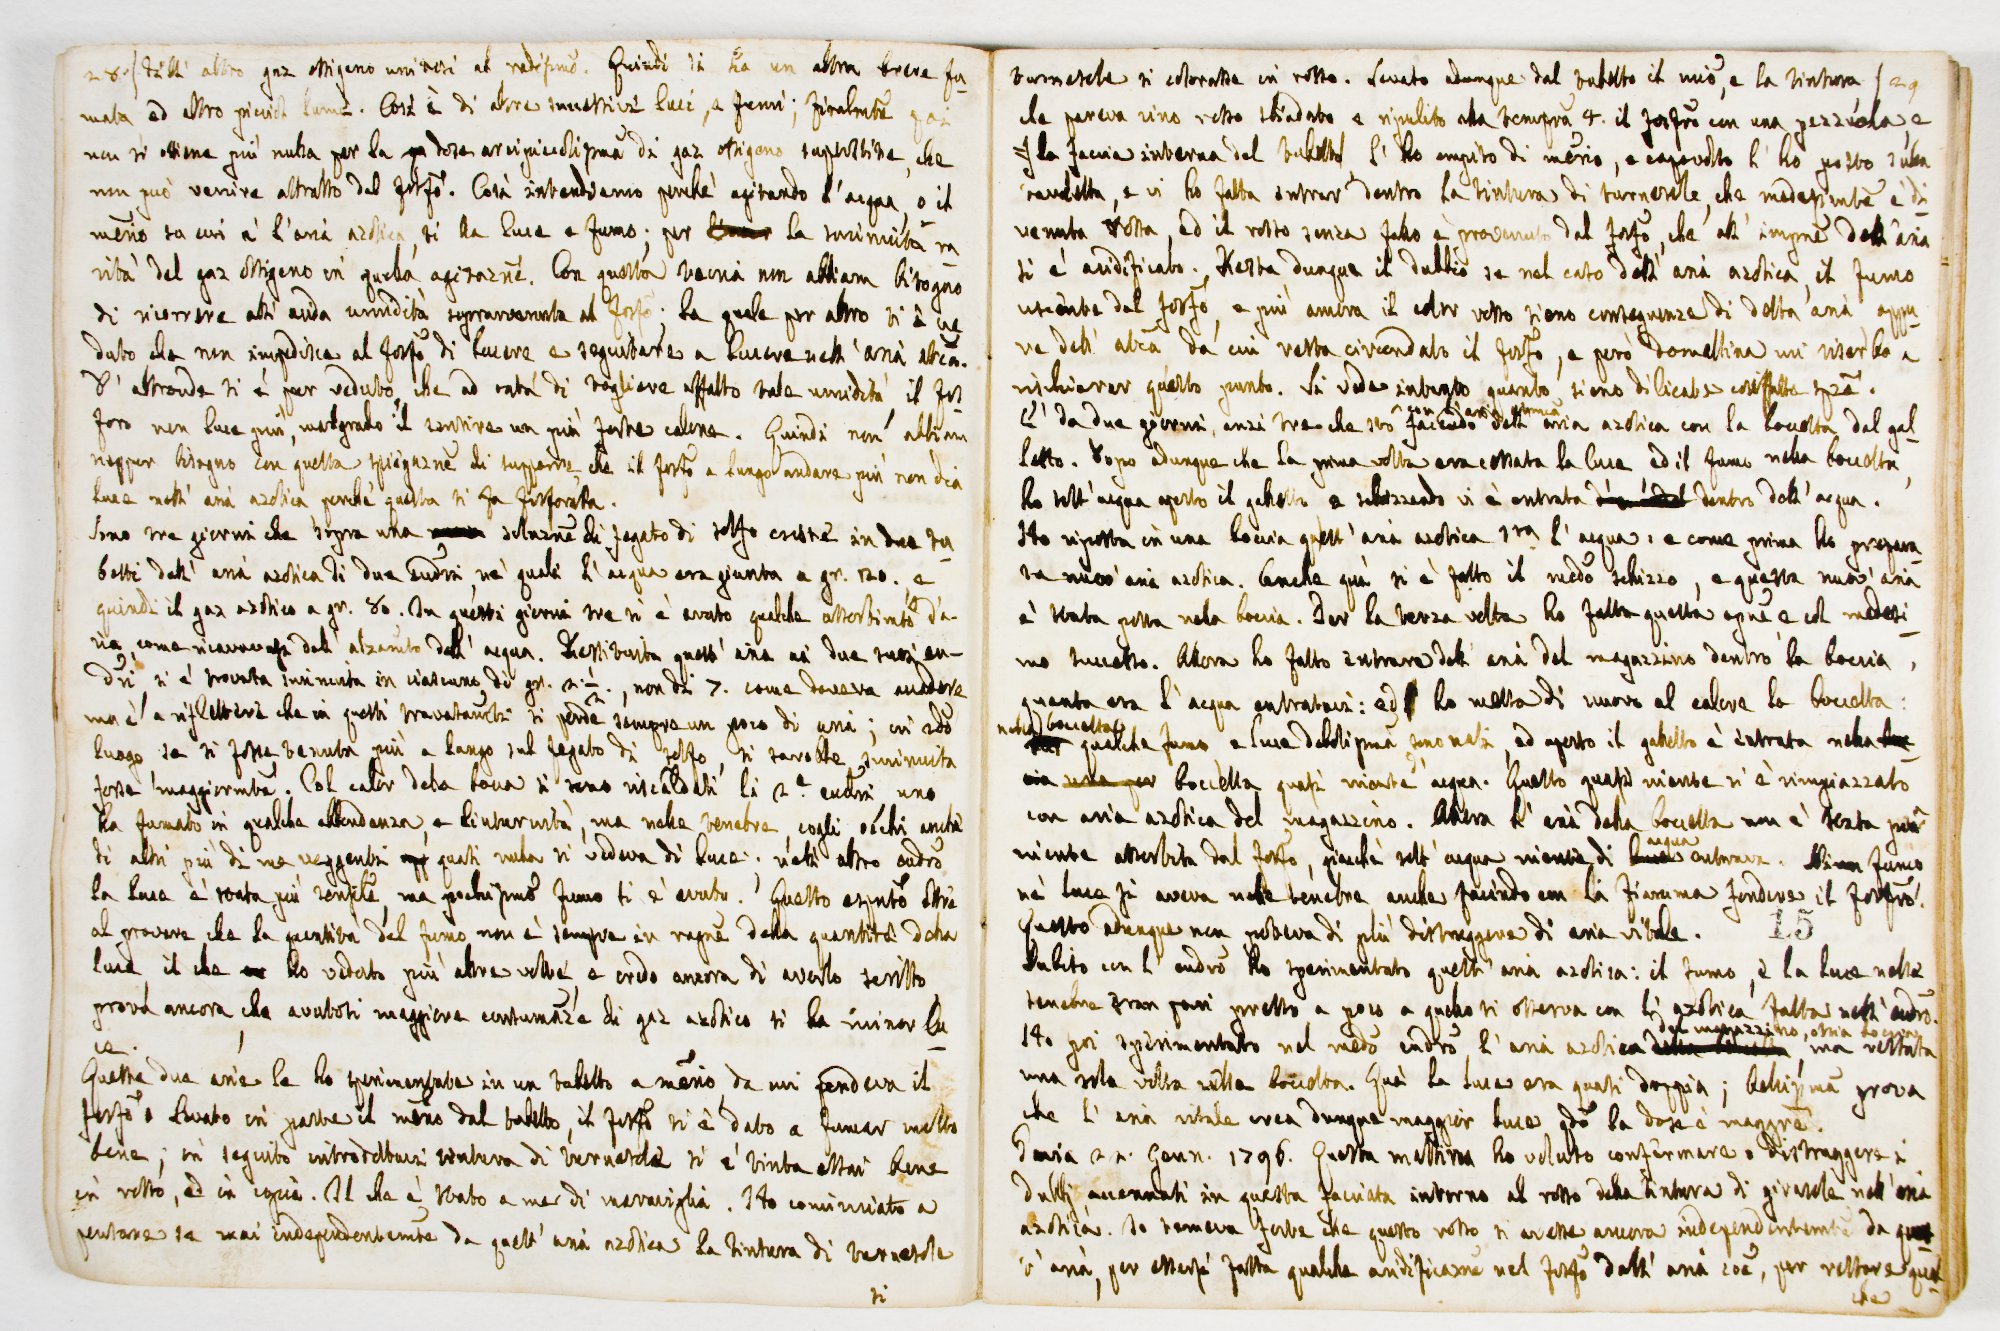 28 dell' altro gaz ossigeno unitosi al medesimo. Quindi si ha un altra breve fu-
mata ed altro picciol lume. Così è di altre successive luci, e fumi; finalmte poi
non si ottiene più nulla per la dose arcipiccolissma di gaz ossigeno superstite, che
non può venire attratto dal fosfo. Così intendiamo perché agitando l'acqua, o il
merio su cui è l'aria azotica, si ha luce e fumo; per la vicinità ra
rità del gaz ossigeno in quella agitazne. Con questa teoria non abbiam bisogno
di ricorrere all' umidità sopravvenuta al fosfo; la quale per altro si è ve
duto che non impedisce al fosfo di lucere e seguitare a lucere nell' aria atca.
D' altronde si è pur veduto, che ad onta di togliere affatto tale umidità il fos-
foro non luce più, malgrado il sentire un più forte calore. Quindi non abbiam
neppur bisogno con questa spiegazne di supporre che il fosfo a lungo andare più non dia
luce nell' aria azotica perché questa si fa fosforata.
Sono tre giorni che sopra una soluzne di fegato di solfo esiste in due tu
betti dell' aria azotica di due eudri, ne' quali l'acqua era giunta a gr. 120. e
quindi il gaz azotico a gr. 80. In questi giorni tre si è avuto qualche assorbimto d'a-
ria, come ricavavasi dall' alzamto dell' acqua. Restituita quest' aria ai due suoi eu-
dri si è trovata sminuita in ciascuno di gr. 2 1/2, non di 7. come doveva accadere
ma è a riflettersi che in questi travasamti si perde sempre un poco di aria; in 2do
luogo se si fosse tenuta più a lungo sul fegato di solfo, si sarebbe sminuita
forse maggiormte. Col calor della bocca si sono riscaldati li 2e eudri uno
ha fumato in qualche abbondanza, e continuità, ma nelle tenebre, cogli occhi anche
di altri più di me veggenti quasi nulla si vedeva di luce; nell' altro eudro
la luce è stata più sensile, ma pochissmo fumo si è avuto. Questo espnto oltre
al provare che la quantità del fumo non è sempre in ragne della quantità della
luce il che ho veduto più altre volte, e credo ancora di averlo scritto
prova ancora che avutosi maggiore consumanza di gaz azotico si ha minor lu-
ce.
Queste due arie le ho sperimentate in un tubetto a merio, da cui pendeva il
fosfo. Levato in parte il merio dal tubetto, il fosfo si è dato a fumar molto
bene; in seguito introdottasi tintura di turnesole si è tinta assai bene
in rosso, ed in copia. Il che è stato a me di maraviglia. Ho cominciato a
pensare se mai independentemte da quell' aria azotica la tintura di turnesole
si
turnesole si colorasse in rosso. Levato adunque dal tubetto il merio, e la tintura 29
che pareva vino rosso sbiadato e ripulito alla tempra 4. il fosfro con una pezzuola, e
la faccia interna del tubetto l' ho empito di merio, e capovolto l' ho posto sulla
tavoletta, e vi ho fatta entrar dentro la tintura di turnesole, che medesimamte è di-
venuta rossa, ed il rosso senza fallo è provenuto dal fosfo, che all' impre dell' aria
si è acidificato. Resta dunque il dubbio se nel caso dell' aria azotica, il fumo
uscente dal fosfo, e più ancora il color rosso sieno conseguenze di detta aria oppu-
re dell' atca da cui resta circondato il fosfo, e però domattina mi riserbo a
rischiarar questo punto. Si vede intanto quanto sieno dilicate cosiffatte spze.
E' da due giorni, anzi tre che sto facendo con l'aria comune dell' aria azotica con la boccetta dal gal-
letto. Dopo adunque che la prima volta era cessata la luce ed il fumo nella boccetta,
ho sott' acqua aperto il galletto e schizzando vi è entrata dentro dell' acqua.
Ho riposta in una boccia quest' aria azotica sra l' acqua: e come prima ho prepara-
ta nuov' aria azotica. Anche qui si è fatto il medo schizzo, e questa nuov' aria
è stata posta nella boccia. Per la terza volta ho fatta questa opne e col medesi-
mo successo. Allora ho fatto entrare dell' aria del magazzino dentro la boccia,
quanta era l' acqua entratavi: ed ho messa di nuovo al calore la boccetta:
nella boccetta qualche fumo e luce debolissma sono nati, ed aperto il galletto è entrata nella
boccetta quasi niente d'acqua. Questo quasi niente si è rimpiazzato
con aria azotica del magazzino. Allora l' aria della boccetta non è stata più
niente assorbita dal fosfo, giacché sott' acqua niente di acqua entrava. Niun fumo
né luce si aveva nelle tenebre anche facendo con la fiamma fondere il fosfro.
Questo adunque non poteva di più distruggere di aria vitale. 15
Subito con l' eudro ho sperimentato quest' aria azotica: il fumo, e la luce nelle
tenebre eran pari presso a poco a quello si osserva con l' azotica fatta nell' eudro.
Ho poi sperimentato nel medo eudro l' aria azotica del magazzino, ossia boccia, ma restata
una sola volta nella boccetta. Quà la luce era quasi doppia; bellissma prova
che l' aria vitale crea dunque maggior luce qdo la dose è maggre.
Pavia 22. Genn. 1796. Questa mattina ho voluto confermare o distruggere i
dubbj accennati in questa facciata intorno al rosso della tintura di girasole nell' aria
azotica. Io temeva forte che questo rosso si avesse ancora independentemte da quel-
l' aria, per essersi fatta qualche acidificazne nel fosfo dall' aria coe, per restare qual
che